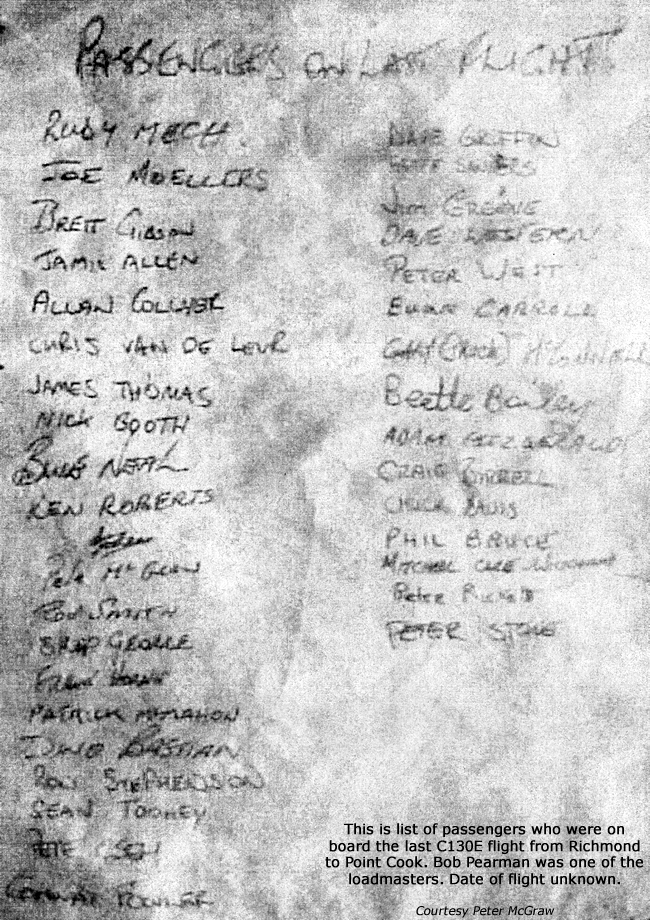 PASSENGERS ON LAST FLIGHT
RUDY MECH.
JOE MOELLERS
BRETT GIBSON
JAMIE ALLEN
ALLAN COLLYER
CHRIS VAN DE LEUR
JAMES THOMAS
NICK BOOTH
NEAL
KEN ROBERTS
Pete McGraw
ROD SMITH
GEORGE
PATRICK McMAHON
BASTIAN
RON STEPHENSON
SEAN TOOHEY
PETE
FOWLER
DAVE GRIFFIN
JIM GREENE
DAVE WESTERN
PETER WEST
CARROLL
McCONNELL
Beetle Bailey
ADAM FITZGERALD
CRAIG
CHUCK DAVIS
PHIL BRUCE
MITCHELL
Peter
PETER STONE
This is list of passengers who were on
board the last C130E flight from Richmond
to Point Cook. Bob Pearman was one of the
loadmasters. Date of flight unknown.
Courtesy Peter McGraw